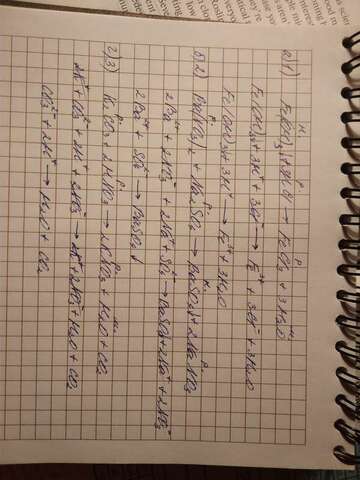 а)1) Fe(OH)₃ + 3HCl → FeCl₃ + 3H₂O
Fe(OH)₃ + 3H⁺ + 3Cl⁻ → Fe³⁺ + 3Cl⁻ + 3H₂O
Fe(OH)₃ + 3H⁺ → Fe³⁺ + 3H₂O
б)2) Ba(NO₃)₂ + Na₂SO₄ → BaSO₄↓ + 2NaNO₃
2Ba²⁺ + 2NO₃⁻ + 2Na⁺ + SO₄²⁻ → BaSO₄↓ + 2Na⁺ + 2NO₃⁻
2Ba²⁺ + SO₄²⁻ → BaSO₄↓
2)3) K₂CO₃ + 2HNO₃ → 2KNO₃ + H₂O + CO₂
2K⁺ + CO₃²⁻ + 2H⁺ + 2NO₃⁻ → 2K⁺ + 2NO₃⁻ + H₂O + CO₂
CO₃²⁻ + 2H⁺ → H₂O + CO₂